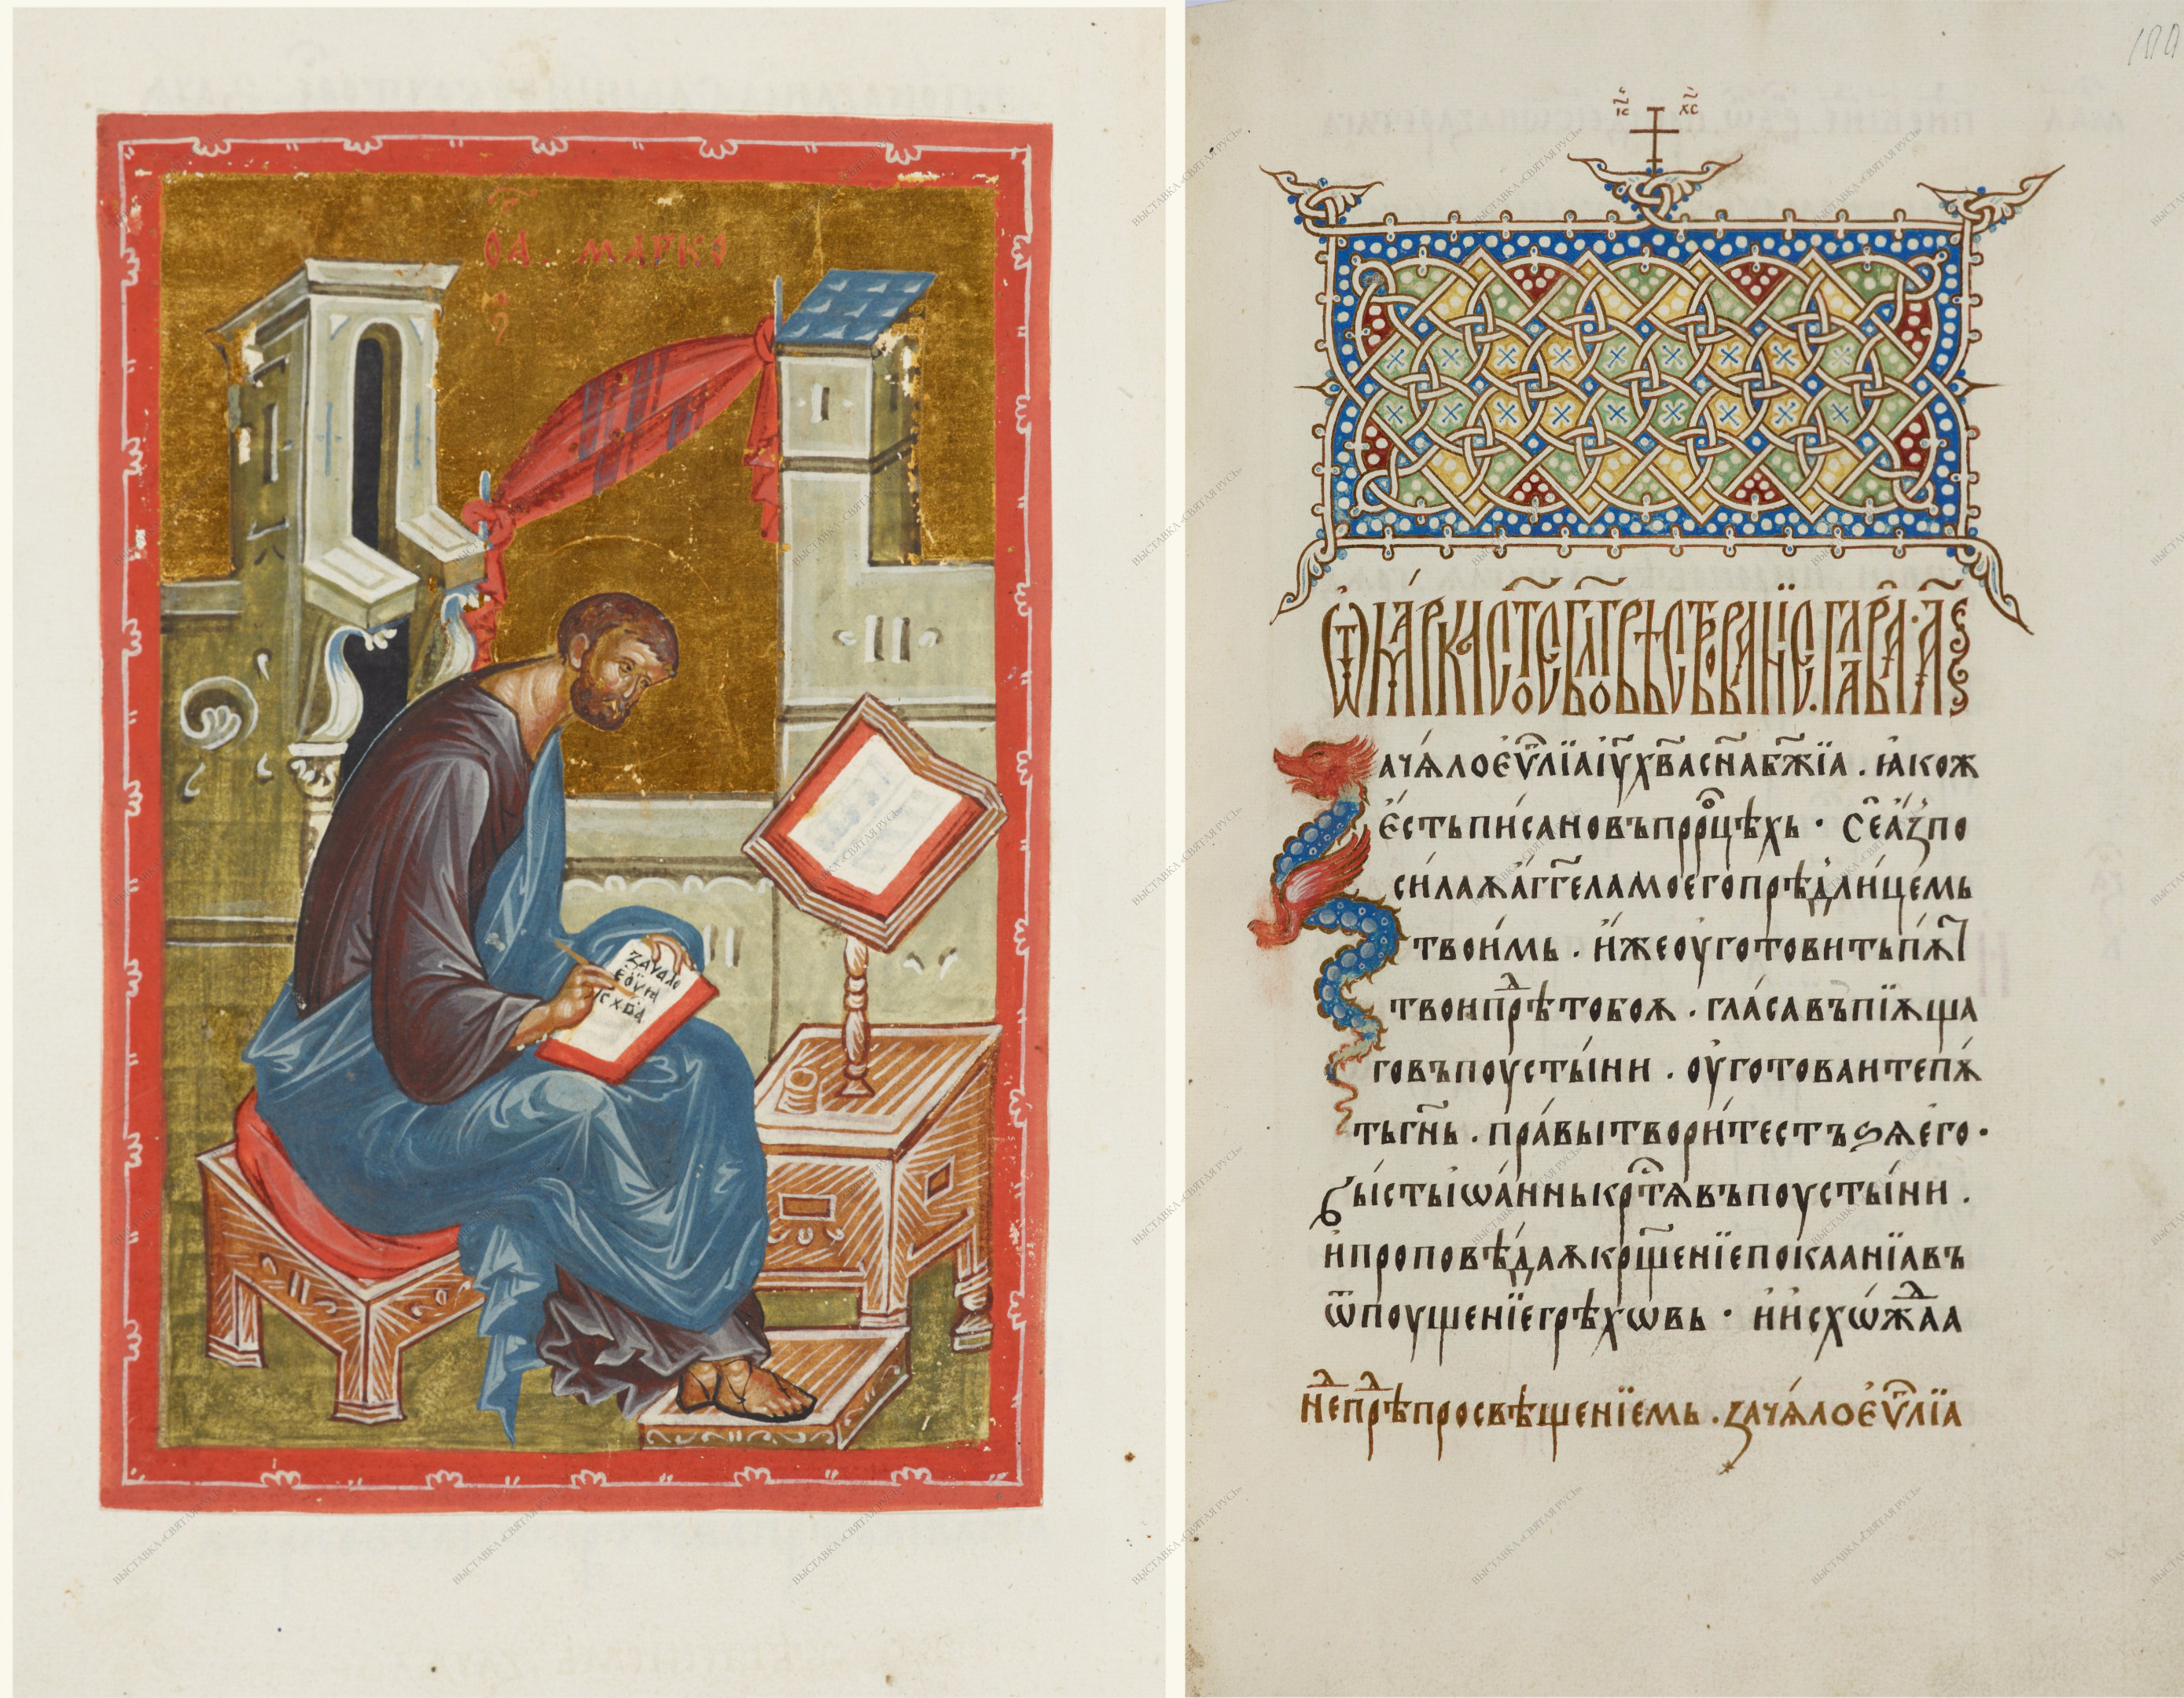 ОА. МАРКО
ЗАЧАЛО
ЕѴⷢ҇
ІС ХВА
І҃С Х҃С
Ѿ МАРКА СТ҃ОЕ БЛ҃ГОВѢСТВОВАНЇЕ. ГЛАВА. А҃
ачѧ́лоєѵⷢ҇лїаі҆у҃хв҃асн҃абж҃їа . ꙗ҆кож
є҆стьпи́сановъпрⷪ҇ро́цѣхь · Сеа́зпо
си́лаѫа҆гг҃еламоегопрѣдли́цемь
твои́мь . и҆́жеоуготовитьпѫт
твоипрѣⷣтобоѫ . гла́савъпїѫща
говъпоусты́ни . оу҆готоваитепѫ́
тьгн҃ь . пра́вытвори́тестъѕѧе҆го ·
Бы́стьіѡа́ннькрⷭ҇тѧвъпоусты́ни .
и҆проповѣ́даѫкрⷭ҇щенїепокаанїавъ
ѿпоущенїегрѣхѡвь · и҆и҆схѡжⷣааа
нⷣепрѣⷣпросвѣщенїемь . зачѧ́лоєѵⷢ҇лїа
ВЫСТАВКА «СВЯТАЯ РУСЬ»